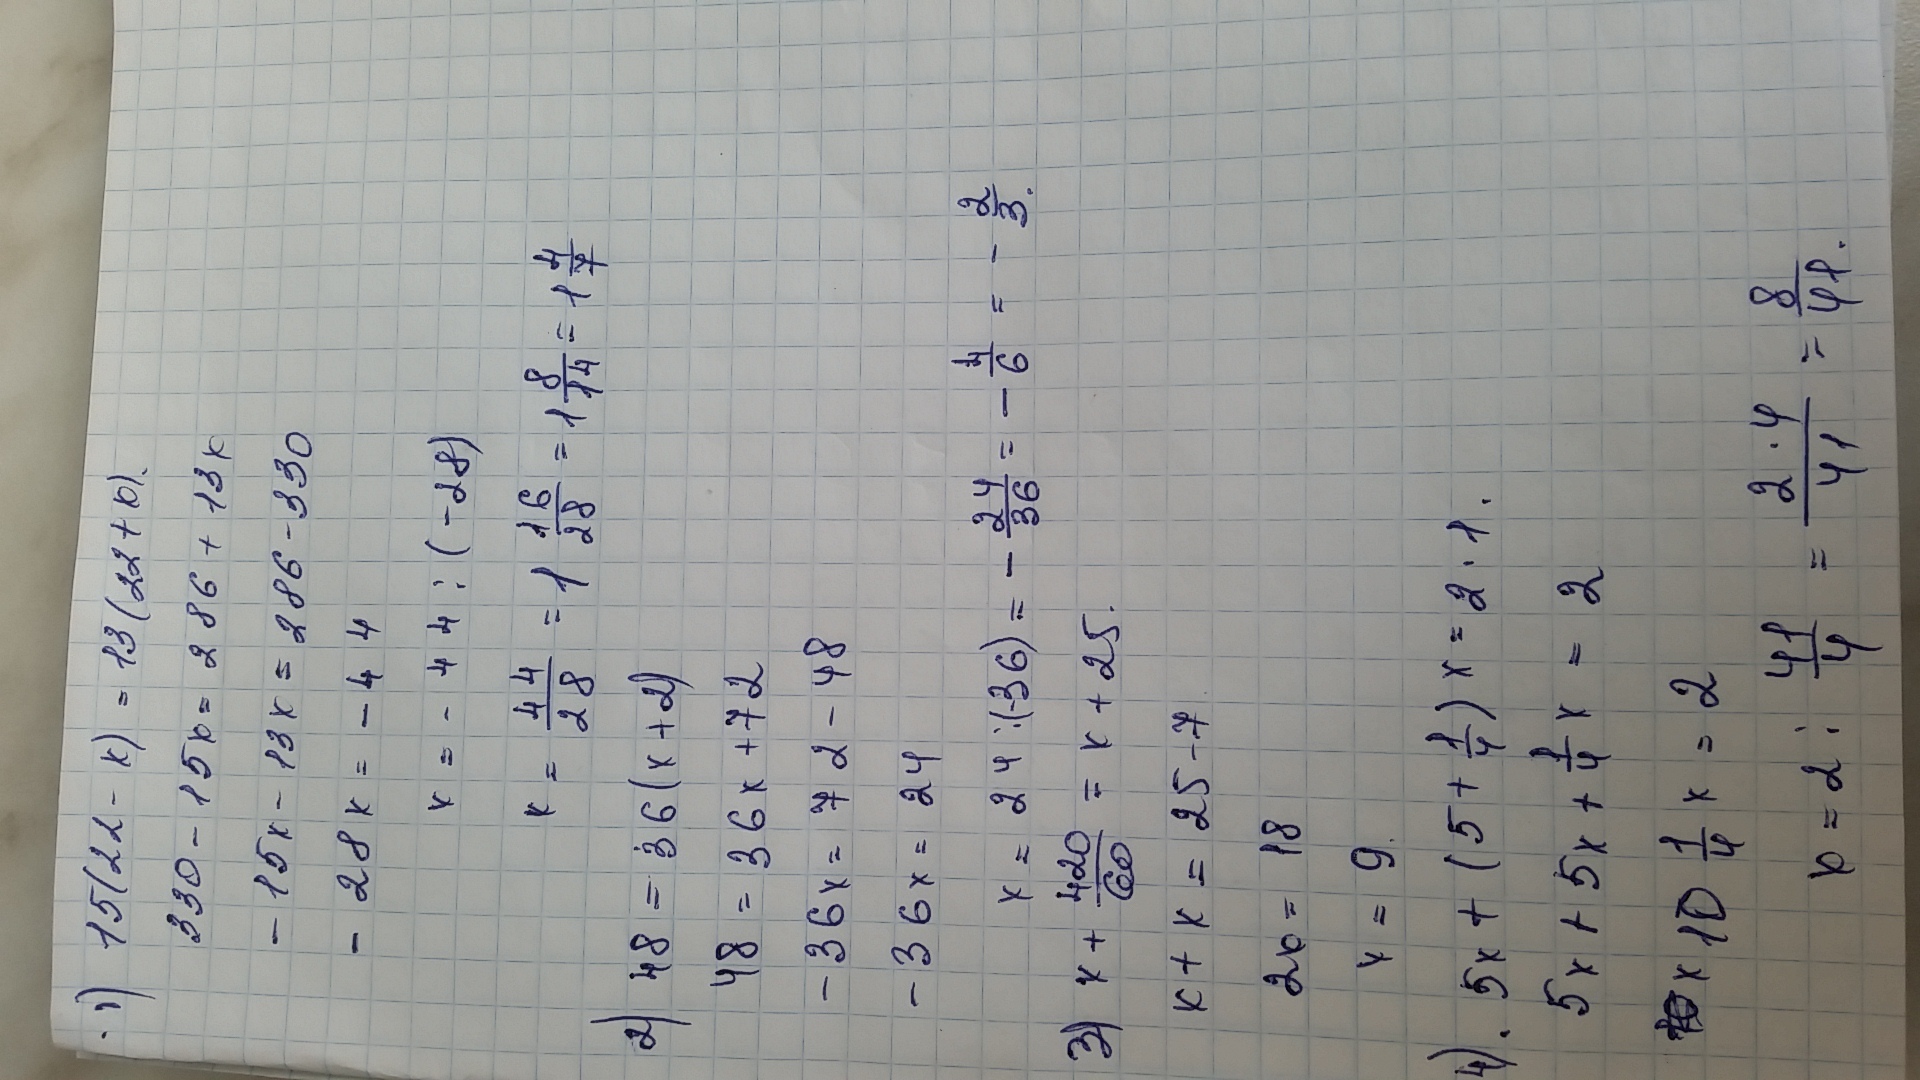 1) 15(22 - x) = 13(22 + x).
330 - 15x = 286 + 13x
- 15x - 13x = 286 - 330
- 28x = - 44
x = - 44 : (-28)
x = 44/28 = 1 16/28 = 1 8/14 = 1 4/7
2) 48 = 36(x + 2)
48 = 36x + 72
- 36x = 72 - 48
- 36x = 24
x = 24 : (-36) = - 24/36 = - 4/6 = - 2/3.
3) x + 420/60 = x + 25.
x + x = 25 - 7
2x = 18
x = 9.
4). 5x + (5 + 1/4) x = 2 · 1.
5x + 5x + 1/4 x = 2
x 10 1/4 x = 2
x = 2 : 41/4 = 2 · 4/41 = 8/41.